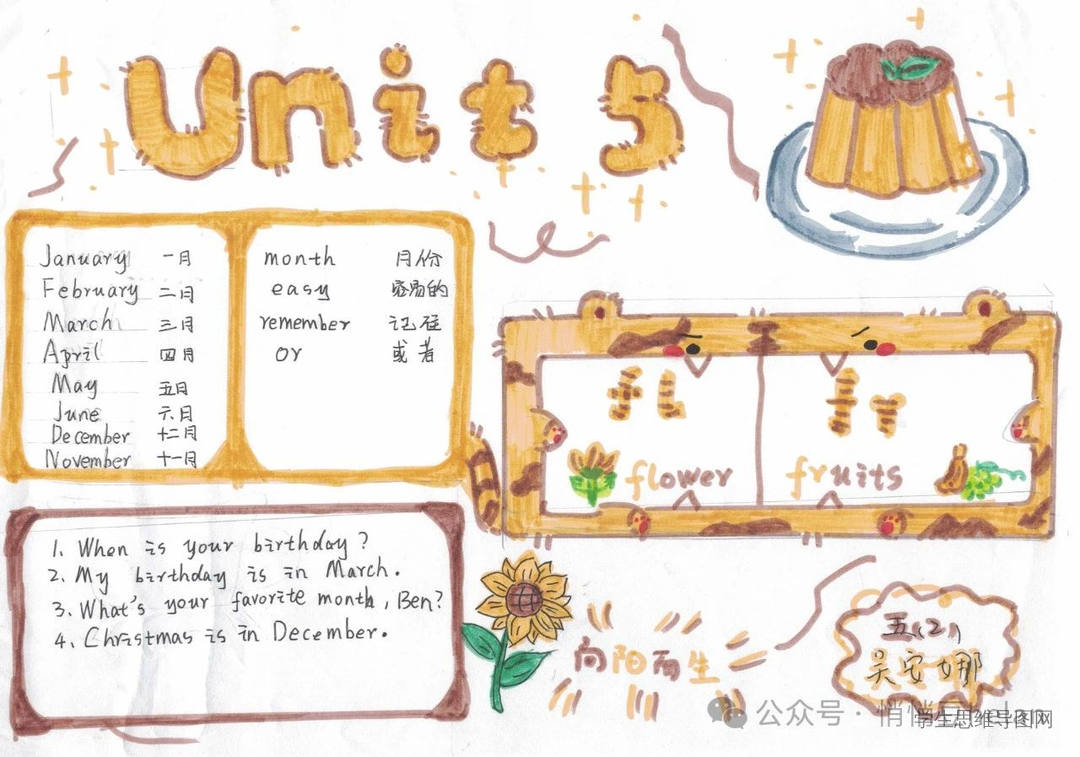 Unit 5
January 一月
February 二月
March 三月
April 四月
May 五月
June 六月
December 十二月
November 十一月
month 月份
easy 容易的
remember 记住
or 或者
fl fr
flower fruits
1. When is your birthday?
2. My birthday is in March.
3. What's your favorite month, Ben?
4. Christmas is in December.
向阳而生
五(2)
吴安娜
公众号·悄悄
学生思维导图网